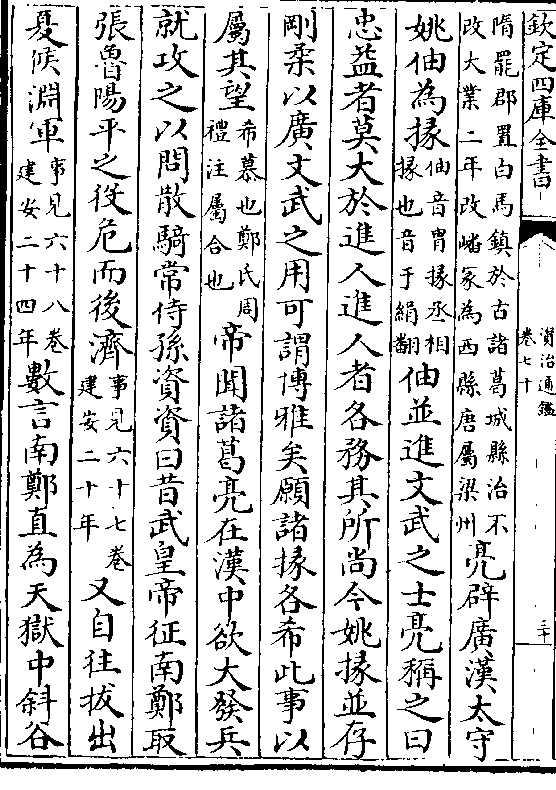 欽定四庫全書
資治通鑑
卷七十
三十
隋罷郡置白馬鎮於古諸葛城縣治不
改大業二年改嶓冢為西縣唐屬梁州
亮辟廣漢太守
姚伷為掾
伷音胄掾丞相
掾也音于絹翻
伷並進文武之士亮稱之曰
忠益者莫大於進人進人者各務其所尚今姚掾並存
剛柔以廣文武之用可謂博雅矣願諸掾各希此事以
屬其望
希慕也鄭氏周
禮注屬合也
帝聞諸葛亮在漢中欲大發兵
就攻之以問散騎常侍孫資資曰昔武皇帝征南鄭取
張魯陽平之役危而後濟
事見六十七卷
建安二十年
又自往拔出
夏侯淵軍
事見六十八卷
建安二十四年
數言南鄭直為天獄中斜谷